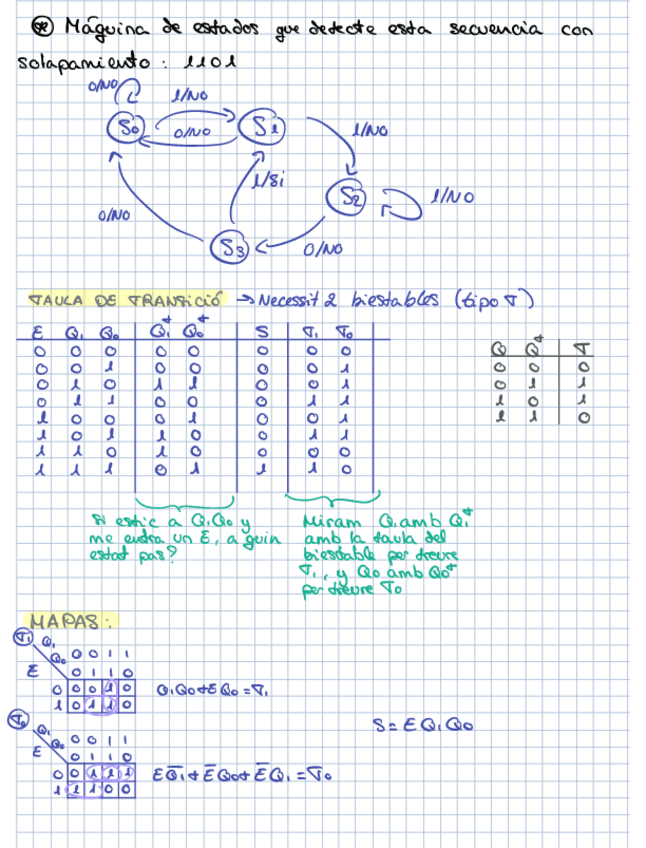 ⊛ Máquina de estados que detecte esta secuencia con
solapamiento: 1101
0/NO
1/NO
S0
0/NO
S1
1/NO
S2
1/NO
1/Si
0/NO
S3
0/NO
TAULA DE TRANSICIÓ → Necessit 2 biestables (tipo T)
E Q1 Q0 Q1+ Q0+ S T1 T0
0 0 0 0 0 0 0 0
0 0 1 0 0 0 0 1
0 1 0 1 1 0 0 1
0 1 1 0 0 0 1 1
1 0 0 0 1 0 0 1
1 0 1 1 0 0 1 1
1 1 0 1 0 0 0 0
1 1 1 0 1 1 1 0
Q Q+ T
0 0 0
0 1 1
1 0 1
1 1 0
Si estic a Q1Q0 y
me entra un E, a quin
estat pas?
Miram Q1 amb Q1+
amb la taula del
biestable per treure
T1, y Q0 amb Q0+
per treure T0
MAPAS:
T1
Q1
Q0 0 0 1 1
E 0 1 1 0
0 0 0 1 0
1 0 1 1 0
Q1Q0+EQ0=T1
T0
Q1
Q0 0 0 1 1
E 0 1 1 0
0 0 1 1 1
1 1 1 0 0
EQ̅1+E̅Q0+E̅Q1=T0
S=EQ1Q0